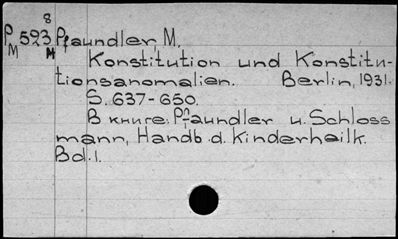 8
P 523 Pfaundler M.
M м
Konstitution und Konstitu-
tionsanomalien. Berlin, 1931.
S. 637-650.
В книге: Pfaundler u. Schloss
mann, Handb. d. Kinderheilk.
Bd. 1.